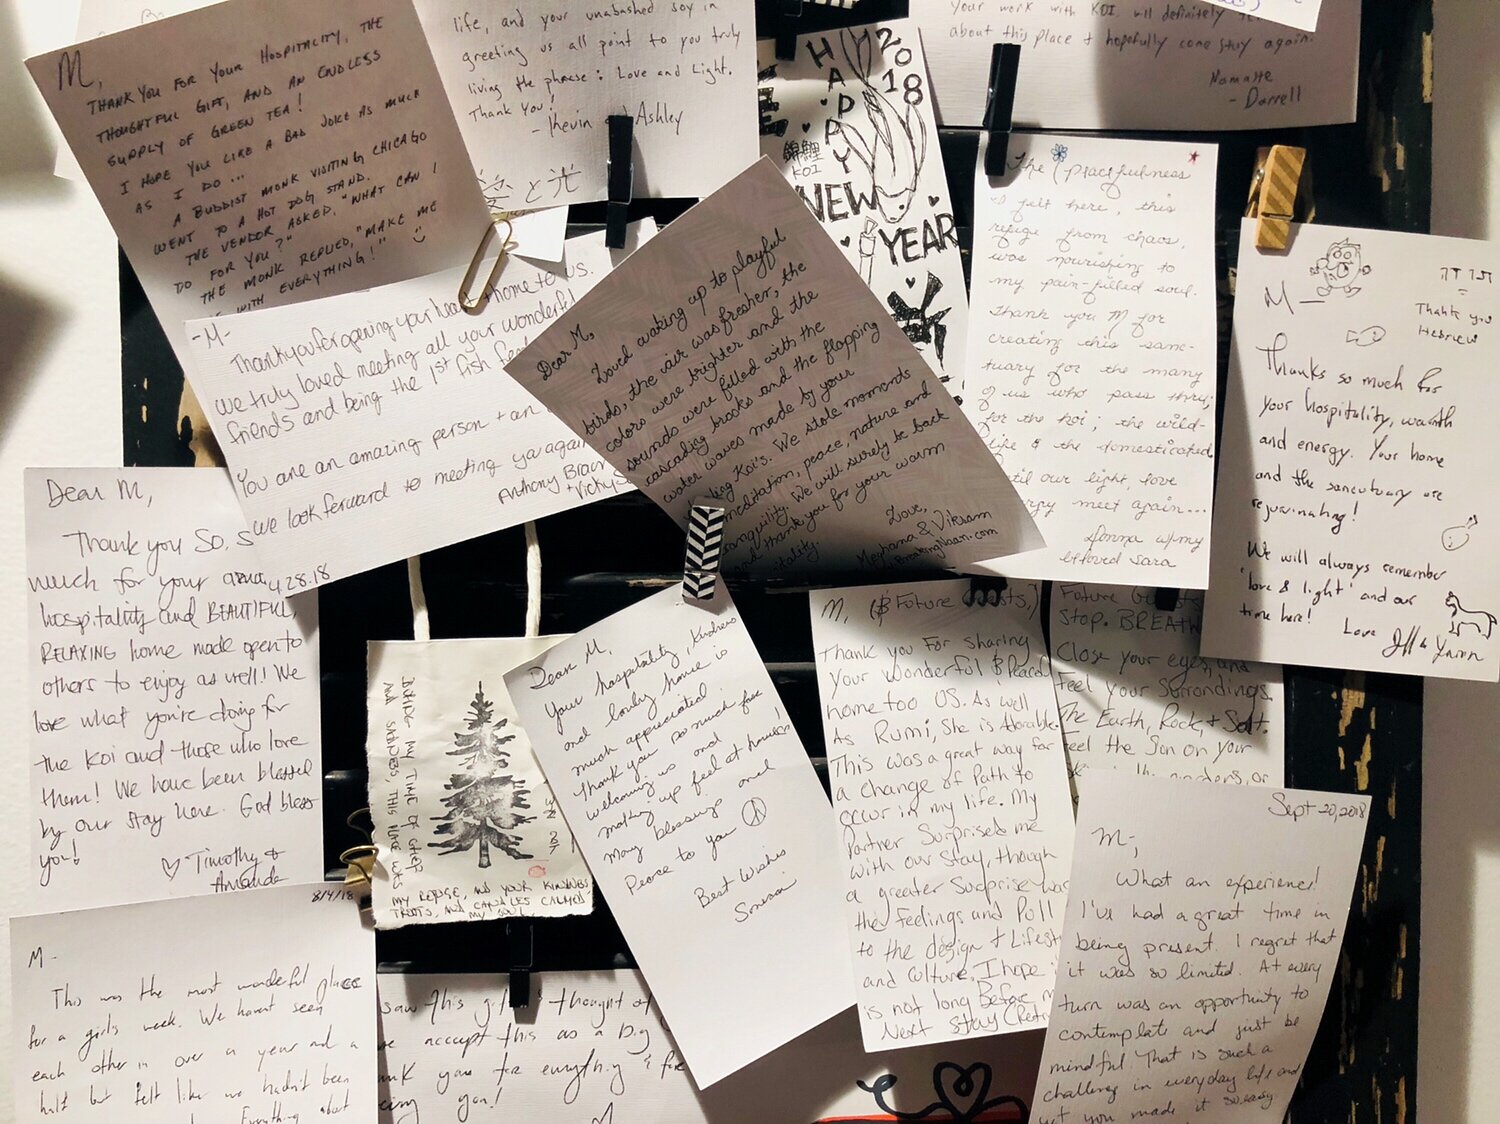 M,
THANK YOU FOR YOUR HOSPITALITY, THE
THOUGHTFUL GIFT, AND AN ENDLESS
SUPPLY OF GREEN TEA!
I HOPE YOU LIKE A BAD JOKE AS MUCH
AS I DO...
A BUDDIST MONK VISITING CHICAGO
WENT TO A HOT DOG STAND.
THE VENDOR ASKED, "WHAT CAN I
DO FOR YOU?"
THE MONK REPLIED, "MAKE ME
WITH EVERYTHING!"
life, and your unabashed joy in
greeting us all point to you truly
living the phrase: Love and Light.
Thank you!
- Kevin Ashley
愛と光
HAPPY
2018
錦鯉
KOI
NEW
YEAR
Your work with KOI. will definitely
about this place & hopefully come stay again.
Namaste
- Darrell
-M-
Thank you for opening your heart + home to us.
We truly loved meeting all your wonderful
friends and being the 1st fish
You are an amazing person + an
we look forward to meeting ya again
Anthony
+ Vicky
4.28.18
Dear M,
Loved waking up to playful
birds, the air was fresher, the
colors were brighter and the
sounds were filled with the
cascading brooks and the flapping
water waves made by your
Koi's. We stole moments
meditation, peace, nature and
tranquility. We will surely be back
and thank you for your warm
Love,
Meghana & Vikram
BreakingNaan.com
The peacefulness
I felt here, this
refuge from chaos,
was nourishing to
my pain-filled soul.
Thank you M for
creating this sanc-
tuary for the many
of us who pass thru;
for the koi; the wild-
life & the domesticated
until our light, love
meet again...
Donna w/my
beloved Sara
M—
תודה
=
Thank you
Hebrew
Thanks so much for
your hospitality, warmth
and energy. Your home
and the sanctuary are
rejuvinating!
We will always remember
'love & light' and our
time here!
Love
Dear M,
Thank you so, s
much for your
hospitality and BEAUTIFUL,
RELAXING home made open to
others to enjoy as well! We
love what you're doing for
the koi and those who love
them! We have been blessed
by our stay here. God bless
you!
♡ Timothy &
Amanda
8/4/18
DURING MY TIME OF GRIEF
AND SADNESS, THIS PLACE WAS
MY REFUGE, AND YOUR KINDNESS,
TREATS, AND CANDLES CALMED
MY SOUL.
Dear M,
Your hospitality, Kindness
and lovely home is
much appreciated
Thank you so much for
welcoming us and
making us feel at home!
May blessings and
Peace to you
Best Wishes
M, (& Future Guests,)
Thank you for sharing
your Wonderful & Peaceful
home too us. As well
As Rumi, She is Adorable.
This was a great way for
a change of Path to
occur in my life. My
Partner Surprised me
with our Stay, though
a greater Surprise was
the feelings and Pull
to the design + Lifestyle
and Culture, I hope
is not long Before
Next Stay
Future Guests
Stop. BREATH
Close your eyes, and
Feel your Surrondings.
The Earth, Rock, + Salt.
Feel the Sun on your
Sept 20, 2018
M-,
What an experience!
I've had a great time in
being present. I regret that
it was so limited. At every
turn was an opportunity to
contemplate and just be
mindful. That is such a
challenge in everyday life and
yet you made it so easy
M-
This was the most wonderful place
for a girls week. We havent seen
each other in over a year and a
half but felt like we hadn't been
Everything about
saw this gift & thought of
accept this as a big
thank you for everything & for
you!
M